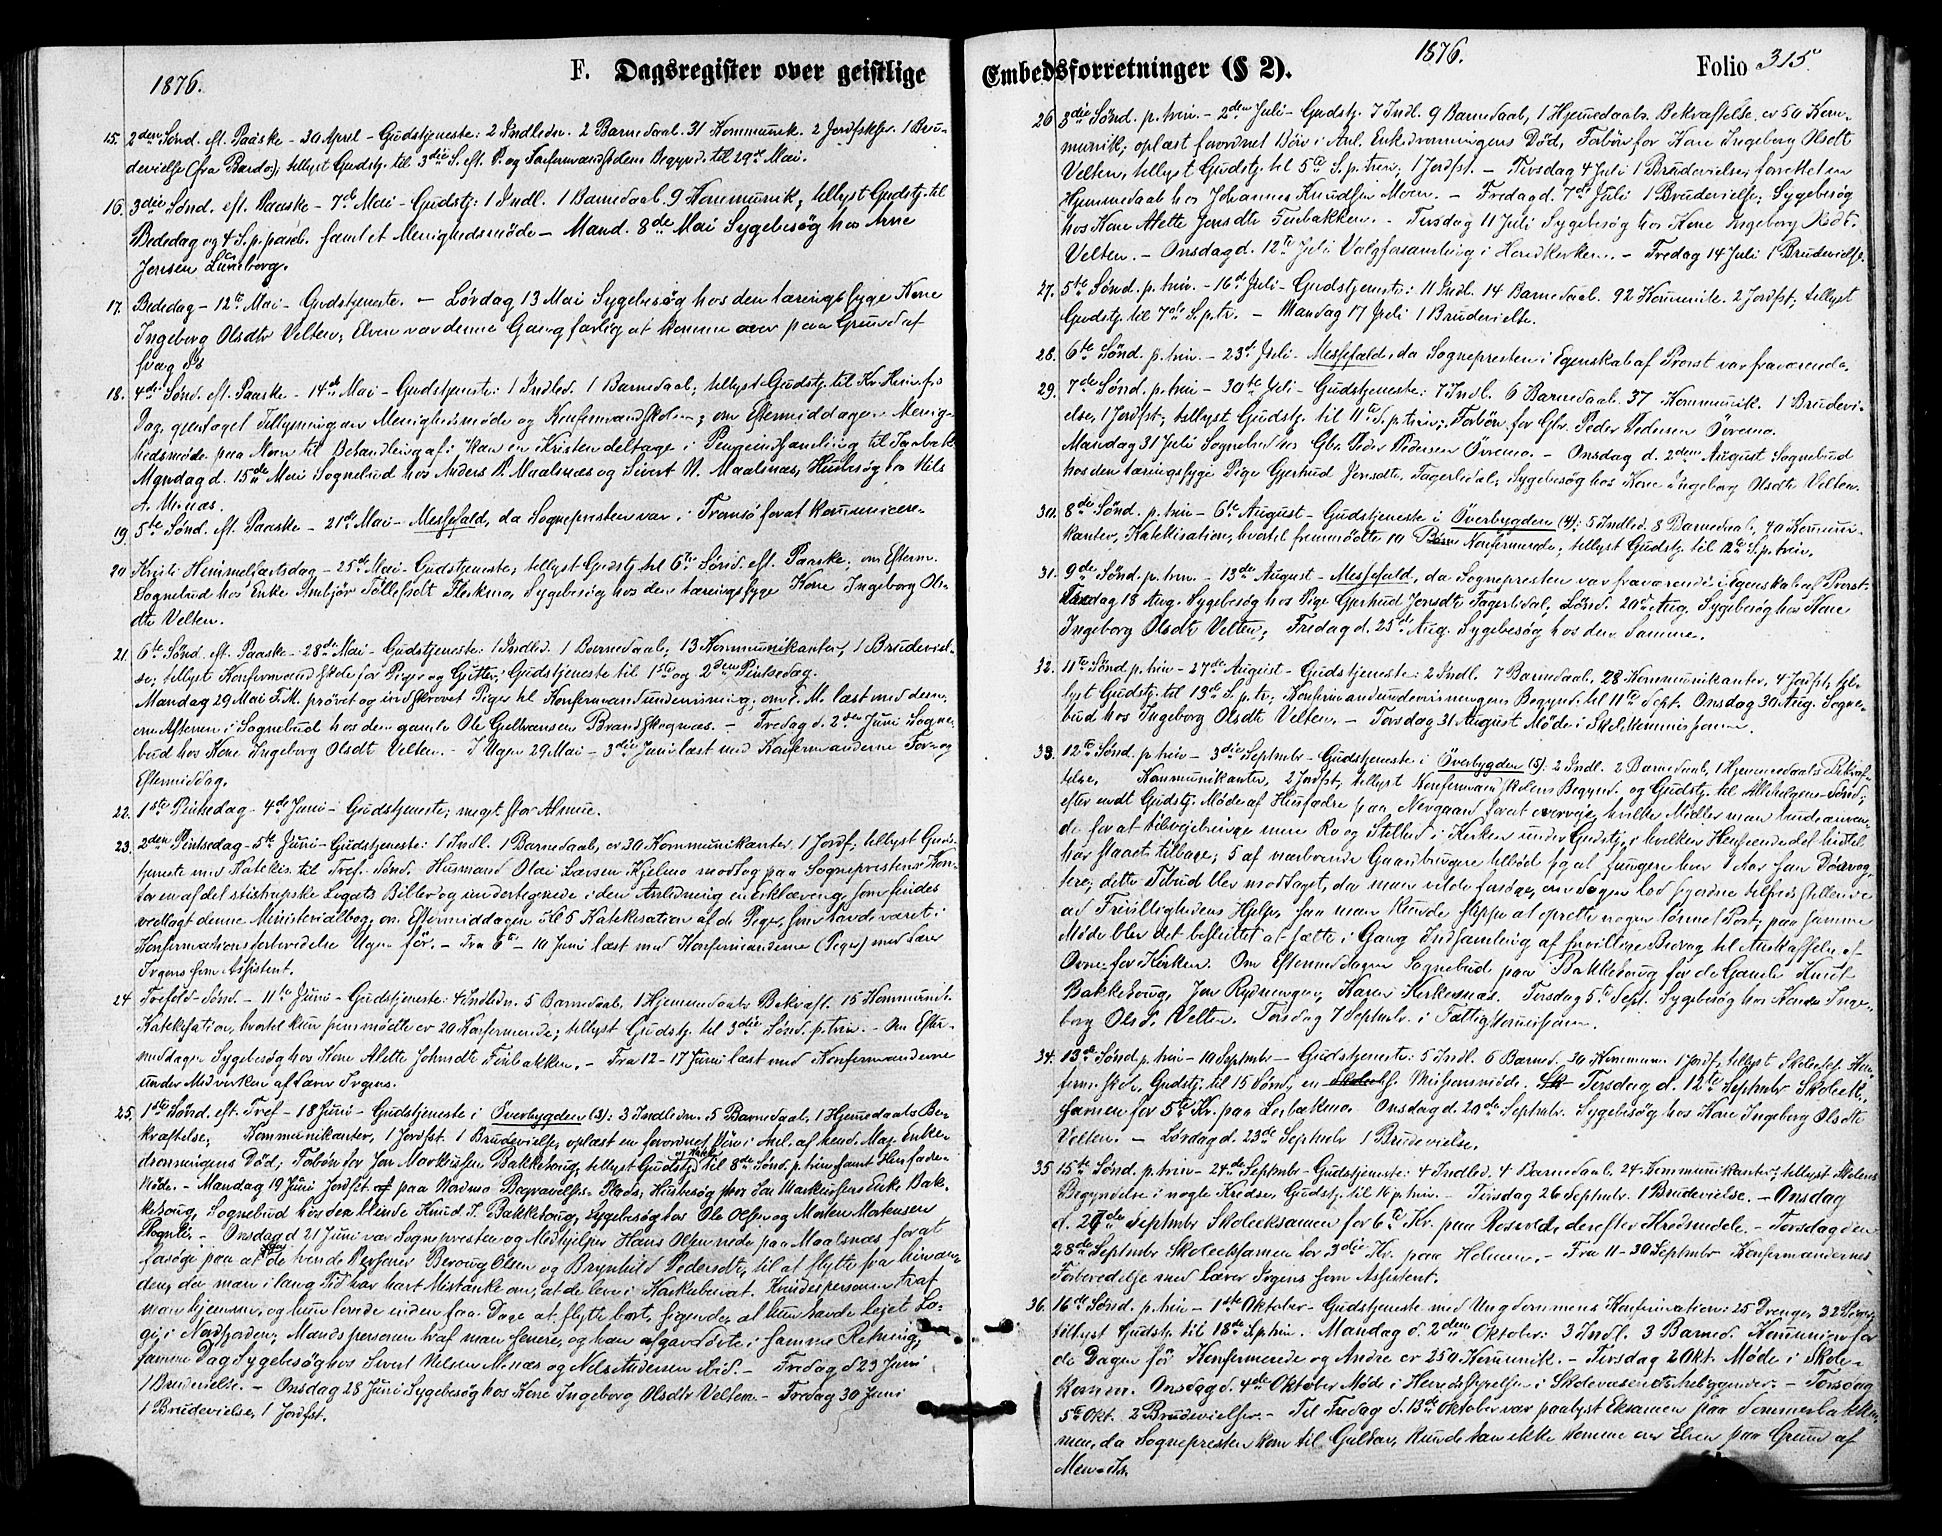 1876.
F. Dagsregister over geistlige
15. 2den Sønd. eft. Paaske - 30 April - Gudstjeneste: 2 Indledn. 2 Barnedaab. 31 Kommunik. 2 Jordfkfr. 1 Bru-
devielse (fra Bardo); tillyst Gudstj. til 3die S. eft. P. og Konfirmandskolens Begynd. til 29de Mai.
16. 3die Sønd. eft. Paaske - 7de Mai - Gudstj: 1 Indl. 1 Barnedaab. 9 Kommunik; tillyst Gudstj. til
Bededag og 4 S. p. pasch. samt et Menighedsmøde - Mand. 8de Mai Sygebesøg hos Arne
Jensen Luneborg.
17. Bededag - 12te Mai - Gudstjeneste. - Lørdag 13 Mai Sygebesøg hos den tæringssyge Kone
Ingeborg Olsdtr Velten; Elven var denne Gang farlig at komme over paa Grund af
svag Is
18. 4de Sønd. eft. Paaske - 14de Mai - Gudstjeneste: 1 Indled. 1 Barnedaab; tillyst Gudstj. til Kr. Himf.
Dag, gjentaget Tillysningen Menighedsmøde og Konfirmandskol.; om Eftermiddagen Menig-
hedsmøde paa Moen til Behandling af: "kan en Kristen deltage i Pengeindsamling til
Mandag d. 15de Mai Sognebud hos Anders N. Maalsnæs og Sivert N. Maalsnæs, Husbesøg hos Nils
A. Monæs.
19. 5te Sønd. eft. Paaske - 21de Mai - Messefald, da Sognepresten var i Tromsø forat kommunicere.
20 Kristi Himmelfartsdag - 25de Mai - Gudstjeneste; tillyst Gudstj. til 6te Sønd. eft. Paaske; om Efterm.
Sognebud hos Enke Ambjør Tollefsdt Fleskmo, Sygebesøg hos den tæringssyge Kone Ingeborg Ols-
dtr Velten.
21. 6te Sønd. eft. Paaske - 28de Mai - Gudstjeneste: 1 Indled. 1 Barnedaab, 13 Kommunikanter, 1 Brudeviel-
se; tillyst Konfirmandskole for Piger og Gutter, Gudstjeneste til 1ste og 2den Pintsedag.
Mandag 29 Mai F.M. prøvet og indskrevet Piger til Konfirmandundervisning; om E.M. læst med dem;
om Aftenen i Sognebud hos den gamle Ole Gulbransen Brandskognæs. - Fredag d. 2den Juni Sogne-
bud hos Kone Ingeborg Olsdt Velten. - I Ugen 29 Mai - 3die Juni læst med Konfirmanderne For- og
Eftermiddag.
22. 1ste Pintsedag - 4de Juni - Gudstjeneste; meget stor Almue.
23. 2den Pintsedag - 5te Juni - Gudstjeneste: 1 Indl. 1 Barnedaab, cr 30 Kommunikanter, 1 Jordf, tillyst Guds-
tjeneste med Katekis. til Tref. Sønd. Husmand Olai Larsen Kjelmo modtog paa Sogneprestens Kon-
tor en af det stistrupske Legats Bibler og undertegnede i den Anledning en Erklæring, som findes
vedlagt denne Ministerialbog; om Eftermiddagen Kl 5 Katekisation af de Piger, som havde været i
Konfirmationsforberedelse Ugen før. - Fra 6te - 10 Juni læst med Konfirmanderne (Piger) med Lærer
Irgens som Assistent.
24 Trefold. Sønd. - 11te Juni - Gudstjeneste: 4 Indledn. 5 Barnedaab, 1 Hjemmedaabs Bekræft. 15 Kommunik.
Katekisation, hvortil kun fremmødte cr 20 Konfirmerede; tillyst Gudstj. til 3die Sønd. p. trin. - Om Efter-
middagen Sygebesøg hos Kone Alette Johnsdt Furbakken. - Fra 12 - 17 Juni læst med Konfirmanderne
under Medvirken af Lærer Irgens.
25. 1ste Sønd. eft. Tref - 18 Juni - Gudstjeneste i Øverbygden (3): 3 Indledn. 5 Barnedaab, 1 Hjemmedaabs Be-
kræftelse, Kommunikanter, 1 Jordfst. 1 Brudevielse, oplæst en forordnet Bøn i Anl. af hend. Maj. Enke-
dronningens Død; Forbøn for Jon Markussen Bakkehaug; tillyst Gudstj. og Katek. til 8de Sønd. p. trin, samt Husfader-
Møde. - Mandag 19 Juni Jordfst. paa Nordmo Begravelses-Plads; Husbesøg hos Jon Markussens Enke Bak-
kehaug, Sognebud hos den blinde Knud J. Bakkehaug, Sygebesøg hos Ole Olsen og Morten Mortensen
Rognli. - Onsdag d 21 Juni var Sognepresten og Medhjelper Hans Olsen nede paa Maalsnæs forat
forsøge paa at faa de tvende Personer Beroug Olsen og Brynhild Pedersdt. til at flytte fra hinan-
den, da man i lang Tid har havt Mistanke om, at de leve i Konkubinat. Kvindespersonen traf
man hjemme, og hun lovede inden faa Dage at flytte bort, sigende, at hun havde lejet Lo-
gi i Nordfjorden; Mandspersonen traf man senere, og han afgav Løfte i samme Retning;
samme Dag Sygebesøg hos Sivert Nielsen Monæs og Nels Andersen ibid. - Fredag d 23 Juni
1 Brudevielse. - Onsdag 28 Juni Sygebesøg hos Kone Ingeborg Olsdtr Velten. - Fredag 30 Juni
1 Brudevielse, 1 Jordfst.
Embedsforretninger (§ 2).
1876.
Folio 315.
26 3die Sønd. p. trin. - 2den Juli - Gudstj. 7 Indl. 9 Barnedaab, 1 Hjemmedaabs Bekræftelse. cr 50 Kom-
munik; oplæst forordnet Bøn i Anl. Enkedronningens Død, Forbøn for Kone Ingeborg Olsdt
Velten, tillyst Gudstj. til 5te S. p. trin, 1 Jordfst. - Tirsdag 4 Juli 1 Brudevielse, forrettet en
Hjemmedaab hos Johannes Knudsen Moen. - Fredag d. 7de Juli 1 Brudevielse; Sygebesøg
hos Kone Alette Jonsdtr Furbakken. - Tirsdag 11 Juli Sygebesøg hos Kone Ingeborg Olsdt.
Velten. - Onsdag d. 12te Juli Valgforsamling i Hovedkirken. - Fredag 14 Juli 1 Brudevielse.
27. 5te Sønd. p. trin. - 16de Juli - Gudstjeneste: 11 Indl. 14 Barnedaab. 92 Kommunik. 2 Jordfst; tillyst
Gudstj. til 7de S. p. tr. - Mandag 17 Juli 1 Brudevielse.
28. 6te Sønd. p. trin. - 23de Juli - Messefald, da Sognepresten i Egenskab af Provst var fraværende.
29. 7de Sønd. p. trin - 30te Juli - Gudstjeneste: 7 Indl. 6 Barnedaab. 37 Kommunik. 1 Brudevi-
else, 1 Jordfst; tillyst Gudstj. til 11te S. p. trin; Forbøn for Gbr. Peder Pedersen Øvremo.
Mandag 31 Juli Sognebud hos Gbr. Peder Pedersen Øvremo. - Onsdag d. 2den August Sognebud
hos den tæringssyge Pige Gjertrud Jonsdtr. Fagerlidal; Sygebesøg hos Kone Ingeborg Olsdt Velten.
30. 8de Sønd. p. trin - 6te August - Gudstjeneste i Øverbygden (4): 5 Indled. 8 Barnedaab, 40 Kommuni-
kanter, Katekisation, hvortil fremmødte 10 Børn Konfirmerede; tillyst Gudstj. til 12te S. p. trin.
31. 9de Sønd. p. trin. - 13de August - Messefald, da Sognepresten var fraværende i Egenskab af Provst.
Fredag 18 Aug. Sygebesøg hos Pige Gjertrud Jonsdtr Fagerlidal, Lørd. 20de Aug. Sygebesøg hos Kone
Ingeborg Olsdtr Velten; Fredag d. 25de Aug. Sygebesøg hos den Samme.
32. 11te Sønd p. trin - 27de August - Gudstjeneste: 2 Indl. 7 Barnedaab, 28 Kommunikanter, 4 Jordfst, til-
lyst Gudstj. til 13de S. p. tr.; Konfirmandundervisningens Begynd. til 11te Sept. Onsdag 30 Aug. Sogne-
bud hos Ingeborg Olsdtr Velten. - Torsdag 31 August Møde i Skolekommissionen.
33. 12te Sønd. p. trin - 3die Septmbr - Gudstjeneste i Øverbygden (5): 2 Indl. 2 Barnedaab, 1 Hjemmedaabs Bekræf-
telse, Kommunikanter, 2 Jordfst, tillyst Konfirmandskolens Begynd. og Gudstj. til Allehelgens-Sønd;
efter endt Gudstj. Møde af Husfædre paa Nergaard forat overveie, hvilke Midler man burde anven-
de for at tilveiebringe mere Ro og Stilhed i Kirken under Gudstj, i hvilken Henseende det hidtil
har staaet tilbage; 5 af nærboende Gaardbrugere tilbød sig at fungere hver 1 Aar som Dørvog-
tere; dette Tilbud blev modtaget, da man vilde forsøge, om Sagen lod sig ordne tilfredsstillende
ad Frivillighedens Hjelp, saa man kunde slippe at oprette nogen lønnet Post; paa samme
Møde blev det besluttet at sætte i Gang Indsamling af frivillige Bidrag til Anskaffelse af
Ovne for Kirken. Om Eftermiddagen Sognebud paa Bakkehaug for de Gamle Knut
Bakkehaug, Jon Rydningen, Karen Kirkesnæs. Tirsdag 5te Sept. Sygebesøg hos Kone Inge-
borg Olsd. Velten. Torsdag 7 Septmbr. i Fattigkommisjonen.
34. 13de Sønd. p. trin - 10 Septmbr - Gudstjeneste: 5 Indl. 6 Barned. 30 Kommun. 1 Jordf; tillyst Skoleeks. Kon-
firm.skol., Gudstj. til 15 Sønd, en Missionsmøde. Tirsdag d. 12te Septmbr Skoleek-
samen for 5te Kr. paa Lerbækmo. Onsdag d. 20de Septmbr. Sygebesøg hos Kone Ingeborg Olsdtr
Velten. - Lørdag d. 23de Septmbr 1 Brudevielse.
35 15te Sønd. p. trin - 24de Septmbr - Gudstjeneste: 4 Indled. 4 Barnedaab. 24 Kommunikanter; tillyst Skolens
Begyndelse i nogle Kredse, Gudstj. til 16 p. trin. - Tirsdag 26 Septmbr. 1 Brudevielse. - Onsdag
d. 27de Septmbr Skoleeksamen for 6te Kr. paa Rosvold, derefter Kredsmøde. - Torsdag den
28de Septmbr Skoleeksamen for 3die Kr. paa Holmen. - Fra 11 - 30 Septmbr Konfirmandernes
Forberedelse med Lærer Irgens som Assistent.
36. 16de Sønd. p. trin - 1ste Oktober - Gudstjeneste med Ungdommens Konfirmation: 25 Drenge, 32 Piger;
tillyst Gudstj. til 18de S. p. trin. Mandag d. 2den Oktober: 3 Indl. 3 Barned. Kommunion for
de Dagen før Konfirmerede og Andre cr 250 Kommunik. - Tirsdag Okt. Møde i Skole-
komm. Onsdag d. 4de Oktober Møde i Herredsstyrelsen i Skolevæsenets Anliggender. - Torsdag
5te Okt. 2 Brudevielser. - Til Fredag d. 13de Oktober var paalyst Eksamen paa
men, da Sognepresten kom til Guldhav, kunde han ikke komme over Elven paa Grund af